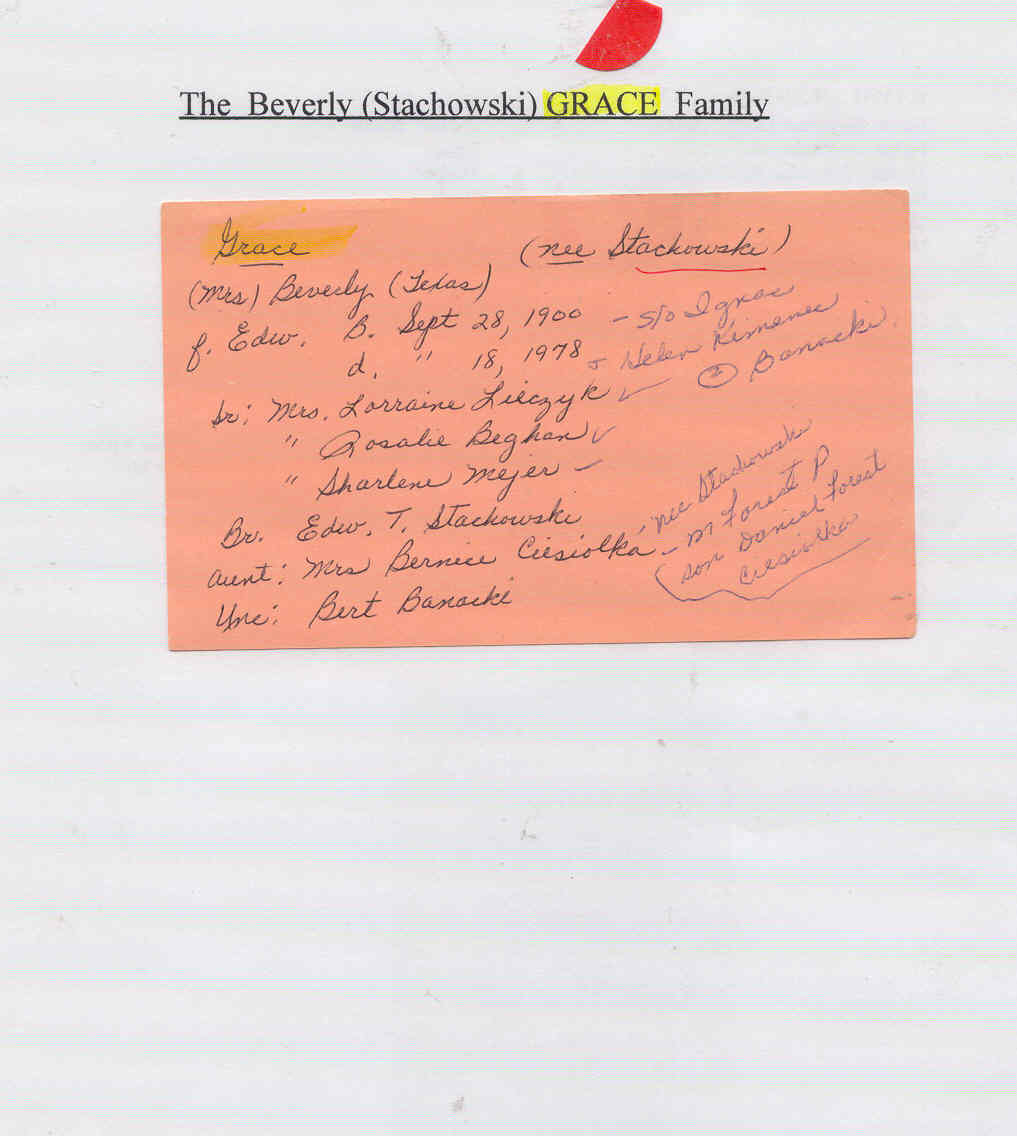 The Beverly (Stachowski) GRACE Family
Grace (nee Stachowski)
(Mrs) Beverly (Texas)
f. Edw. B. Sept 28, 1900 - s/o Ignac
d. " 18, 1978 + Helen Kimenec
② Banacki
Sr: Mrs. Lorraine Lilczyk ✓
" Rosalie Beghan ✓
" Sharlene Mejer -
Br. Edw. T. Stachowski
Aunt: Mrs Bernice Ciesiolka - nee Stachowski
- m Forest P
son Daniel Forest
Ciesiolka
Unc: Bert Banacki